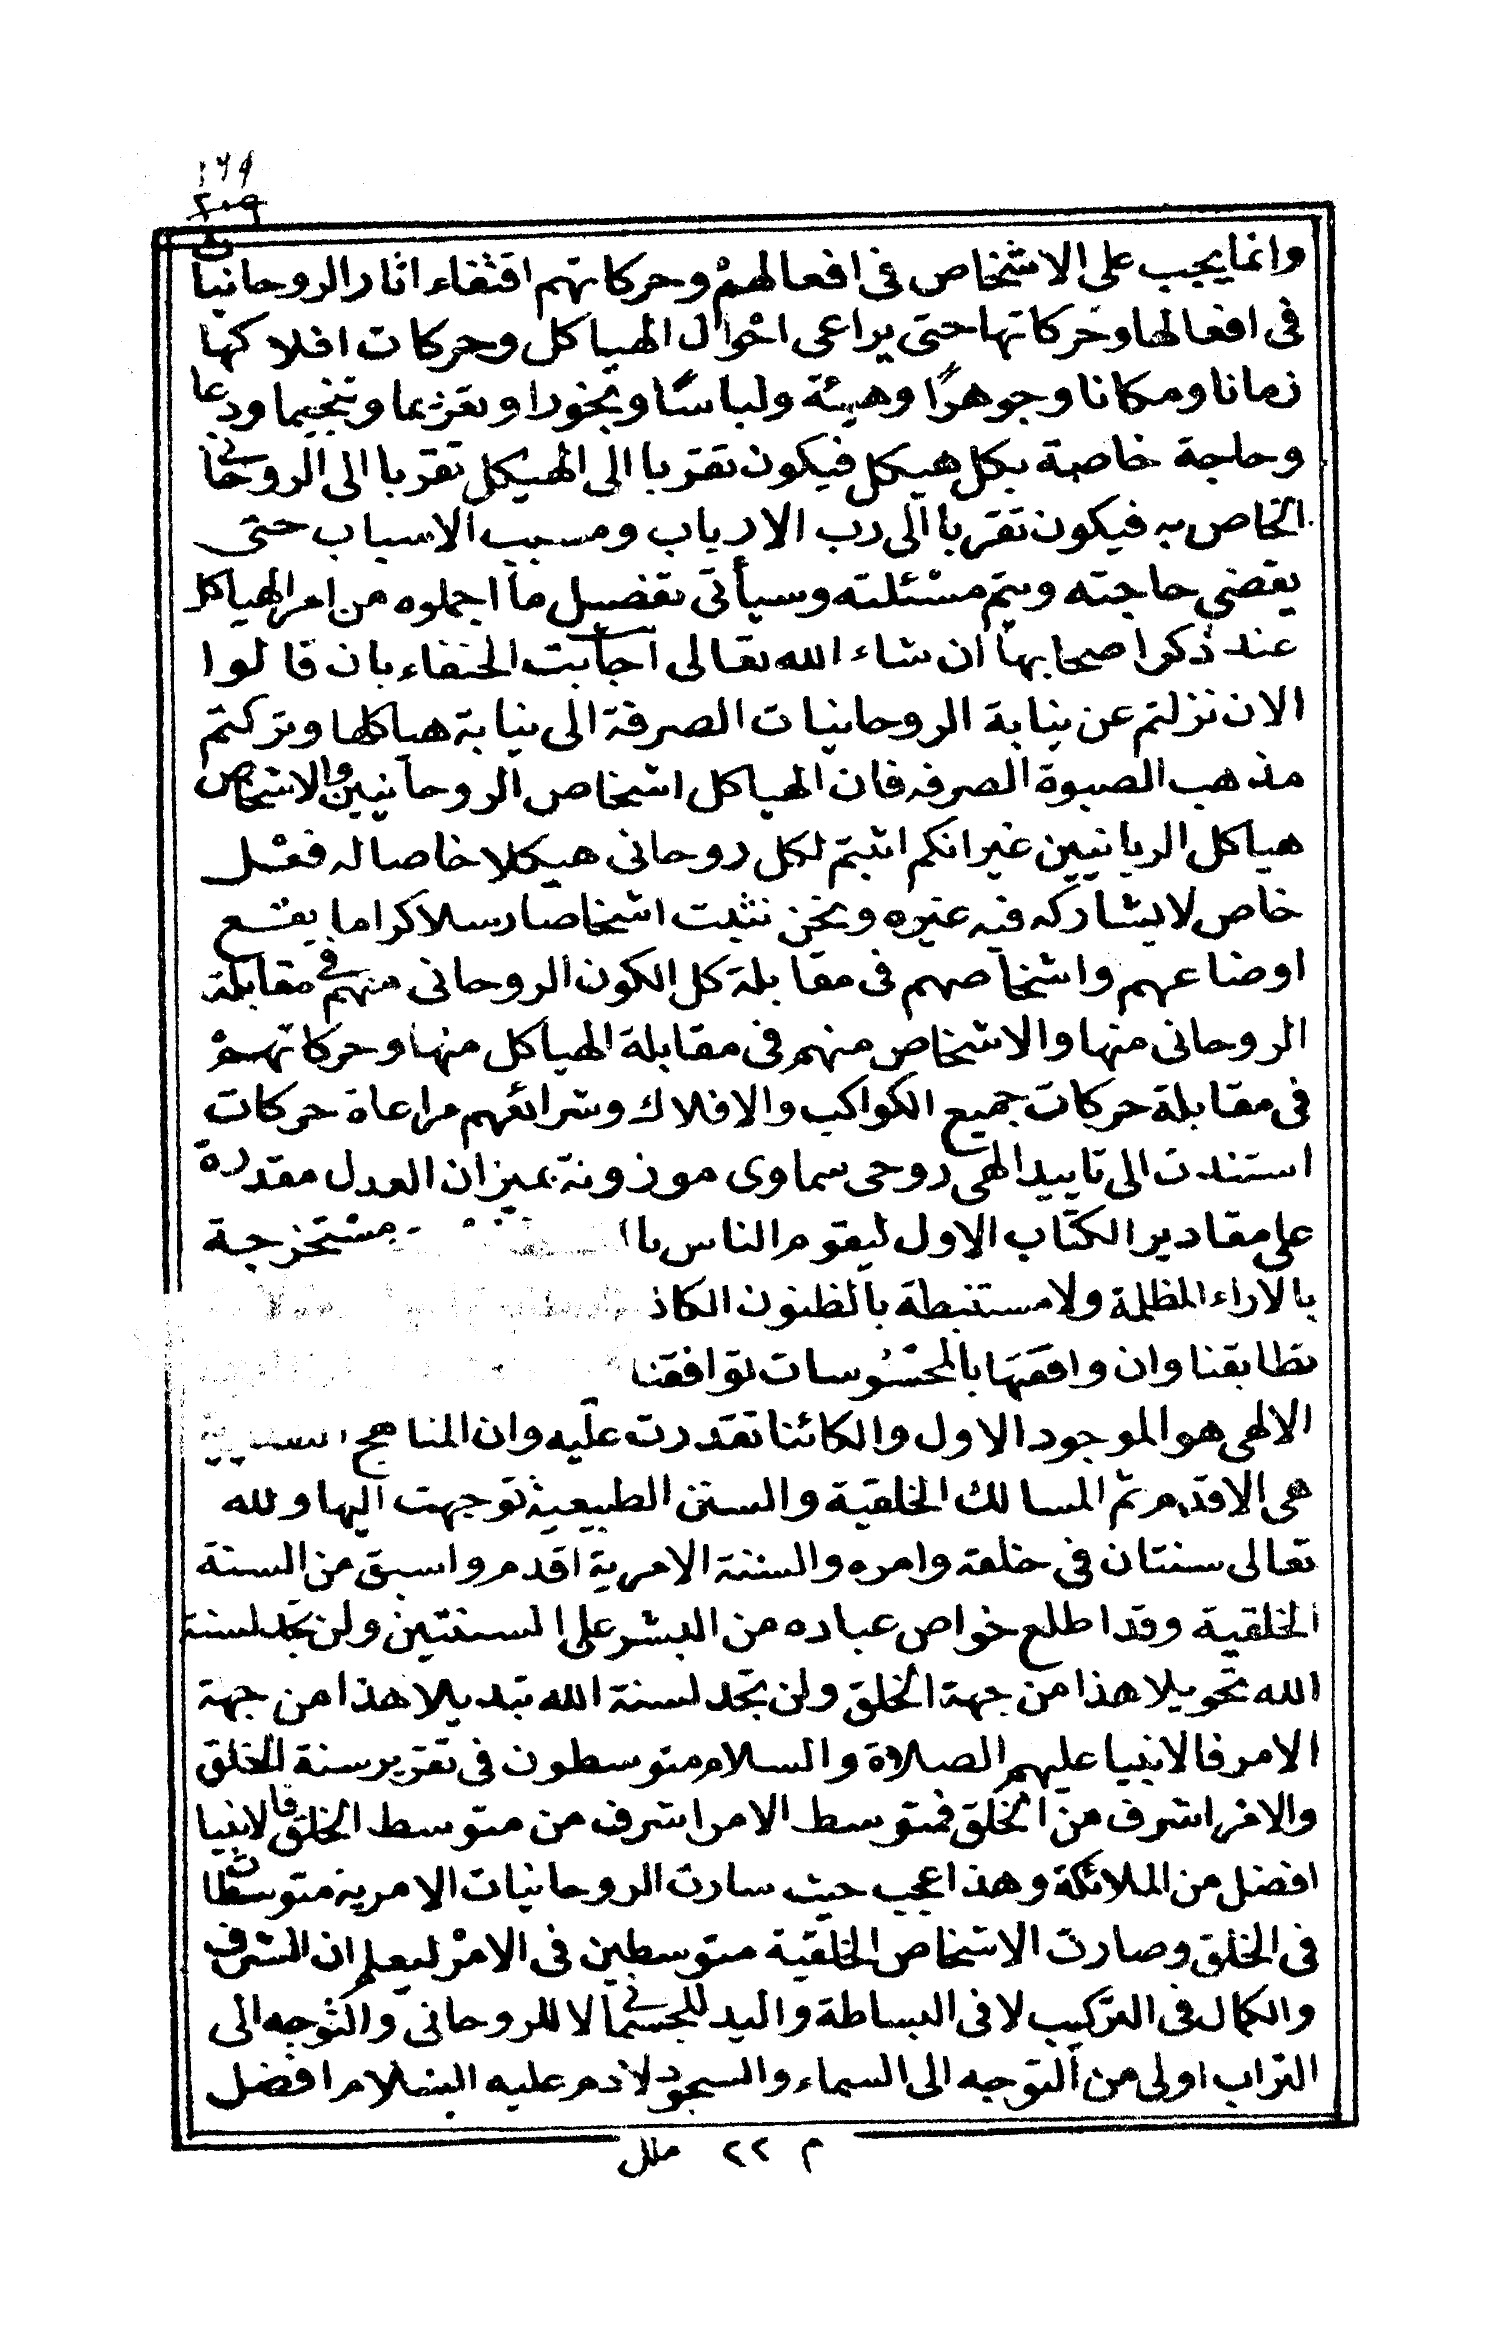 ١٦٩
٢٠٩
وانما يجب على الاشخاص فى افعالهم وحركاتهم اقتفاء اثار الروحانيات
فى افعالها وحركاتها حتى يراعى احوال الهياكل وحركات افلاكها
زمانا ومكانا وجوهرا وهيئة ولباسا وبخورا وتعزيما وتنجيما ودعا
وحاجة خاصة بكل هيكل فيكون تقربا الى الهيكل تقربا الى الروحانى
الخاص به فيكون تقربا الى رب الارباب ومسبب الاسباب حتى
يقضى حاجته ويتم مسئلته وسيأتى تفصيل ما اجملوه من امر الهياكل
عند ذكر اصحابها ان شاء الله تعالى اجابت الحنفاء بان قالوا
الان نزلتم عن نيابة الروحانيات الصرفة الى نيابة هياكلها وتركتم
مذهب الصبوة الصرفه فان الهياكل اشخاص الروحانيين والاشخاص
هياكل الربانيين غير انكم اثبتم لكل روحانى هيكلا خاصا له فعل
خاص لا يشاركه فيه غيره ونحن نثبت اشخاصا رسلا كراما يقع
اوضاعهم واشخاصهم فى مقابلة كل الكون الروحانى منهم فى مقابلة
الروحانى منها والاشخاص منهم فى مقابلة الهياكل منها وحركاتهم
فى مقابلة حركات جميع الكواكب والافلاك وشرائعهم مراعاة حركات
استندت الى تاييد الهى روحى سماوى موزونة بميزان العدل مقدرة
على مقادير الكتاب الاول ليقوم الناس با مستخرجة
بالاراء المظلمة ولا مستنبطة بالظنون الكاذ
تطابقنا وان وافقتها بالمحسوسات توافقنا
الالهى هو الموجود الاول والكائنا تقدرت عليه وان المناهج
هى الاقدم ثم المسالك الخلقية والسنن الطبيعية توجهت اليها ولله
تعالى سنتان فى خلقه وامره والسنة الامرية اقدم واسبق من السنة
الخلقية وقد اطلع خواص عباده من البشر على السنتين ولن تجد لسنة
الله تحويلا هذا من جهة الخلق ولن تجد لسنة الله تبديلا هذا من جهة
الامر فالانبيا عليهم الصلاة والسلام متوسطون فى تقرير سنة الخلق
والامر اشرف من الخلق فمتوسط الامر اشرف من متوسط الخلق فالانبيا
افضل من الملائكة وهذا عجب حيث سارت الروحانيات الامريه متوسطات
فى الخلق وصارت الاشخاص الخلقية متوسطين فى الامر ليعلم ان الشرف
والكمال فى التركيب لا فى البساطة واليد للجسمانى لا للروحانى والتوجه الى
التراب اولى من التوجه الى السماء والسجود لادم عليه السلام افضل
م ٢٢ ملل